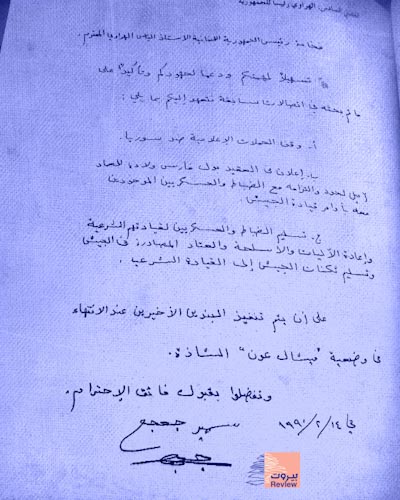 الهراوي رئيساً للجمهورية
فخامة رئيس الجمهورية اللبنانية الاستاذ الياس الهراوي المحترم.
تسهيلاً لمهمتكم ودعماً لجهودكم وتأكيداً على
ما تم بحثه في اتصالات سابقة نتعهد إليكم بما يلي:
أ. وقف الحملات الإعلامية ضد سوريا.
ب. إعلان العقيد بول فارس ولاءه للعماد
إميل لحود والتزامه مع الضباط والعسكريين الموجودين
معه بأوامر قيادة الجيش.
ج. تسليم الضباط والعسكريين لقيادتهم الشرعية
وإعادة الآليات والأسلحة والعتاد المصادرة من الجيش
وتسليم ثكنات الجيش إلى القيادة الشرعية.
على أن يتم تنفيذ البندين الأخيرين عند الانتهاء
من وضعية "ميشال عون" الشاذة.
وتفضلوا بقبول فائق الإحترام.
في ١٩٩٠/٢/١٤ سمير جعجع
بيروت
Review